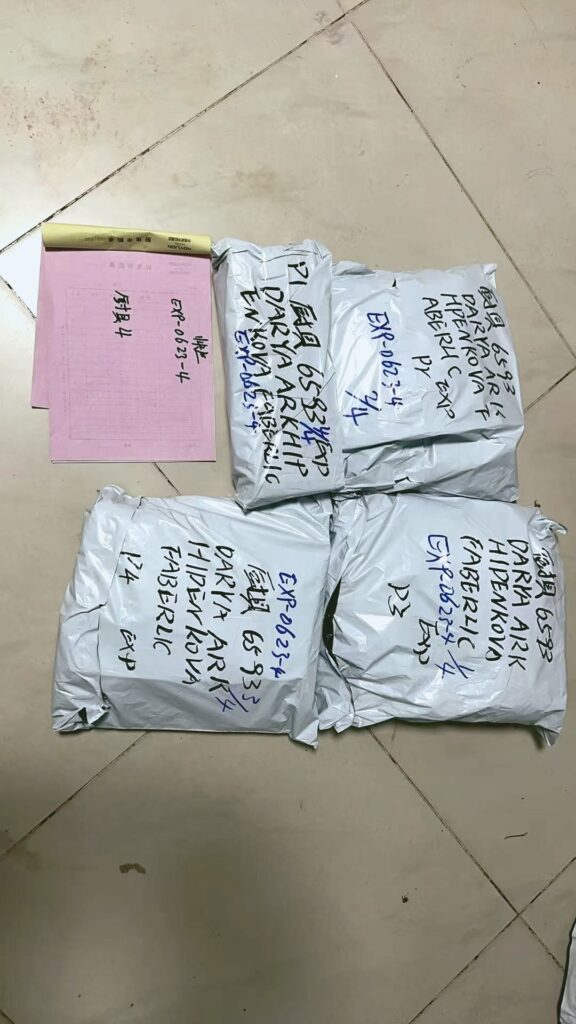 EXP-0623-4
厨具4
P1 厨具 6593 1/4 EXP
DARYA ARKHIP
ENKOVA FABERLIC
EXP-0623-4
厨具 6593
DARYA ARK
HPENKOVA F
ABERLIC EXP
PY
EXP-0623-4
2/4
EXP-0623-4
厨具 6593 3/4
DARYA ARK
HIPENKOVA
FABERLIC
P4 EXP
厨具 6593
DARYA ARK
HIPENKOVA
FABERLIC
EXP-0623-4 4/4
P3 EXP